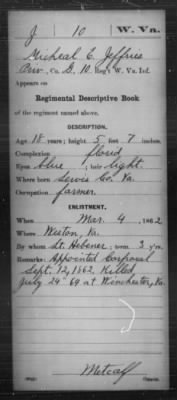 J | 10 | W. Va.
Micheal C. Jeffries
Priv., Co. G, 10 Reg't W. Va. Inf.
Appears on
Regimental Descriptive Book
of the regiment named above.
DESCRIPTION.
Age 18 years; height 5 feet 7 inches.
Complexion florid
Eyes blue; hair light.
Where born Lewis Co. Va.
Occupation farmer.
ENLISTMENT.
When Mar. 4, 1862
Where Weston, Va.
By whom Lt. Hebener; term 3 y'rs.
Remarks: Appointed Corporal
Sept. 12, 1862. Killed
July 24 - 64 at Winchester, Va.
Metcalf